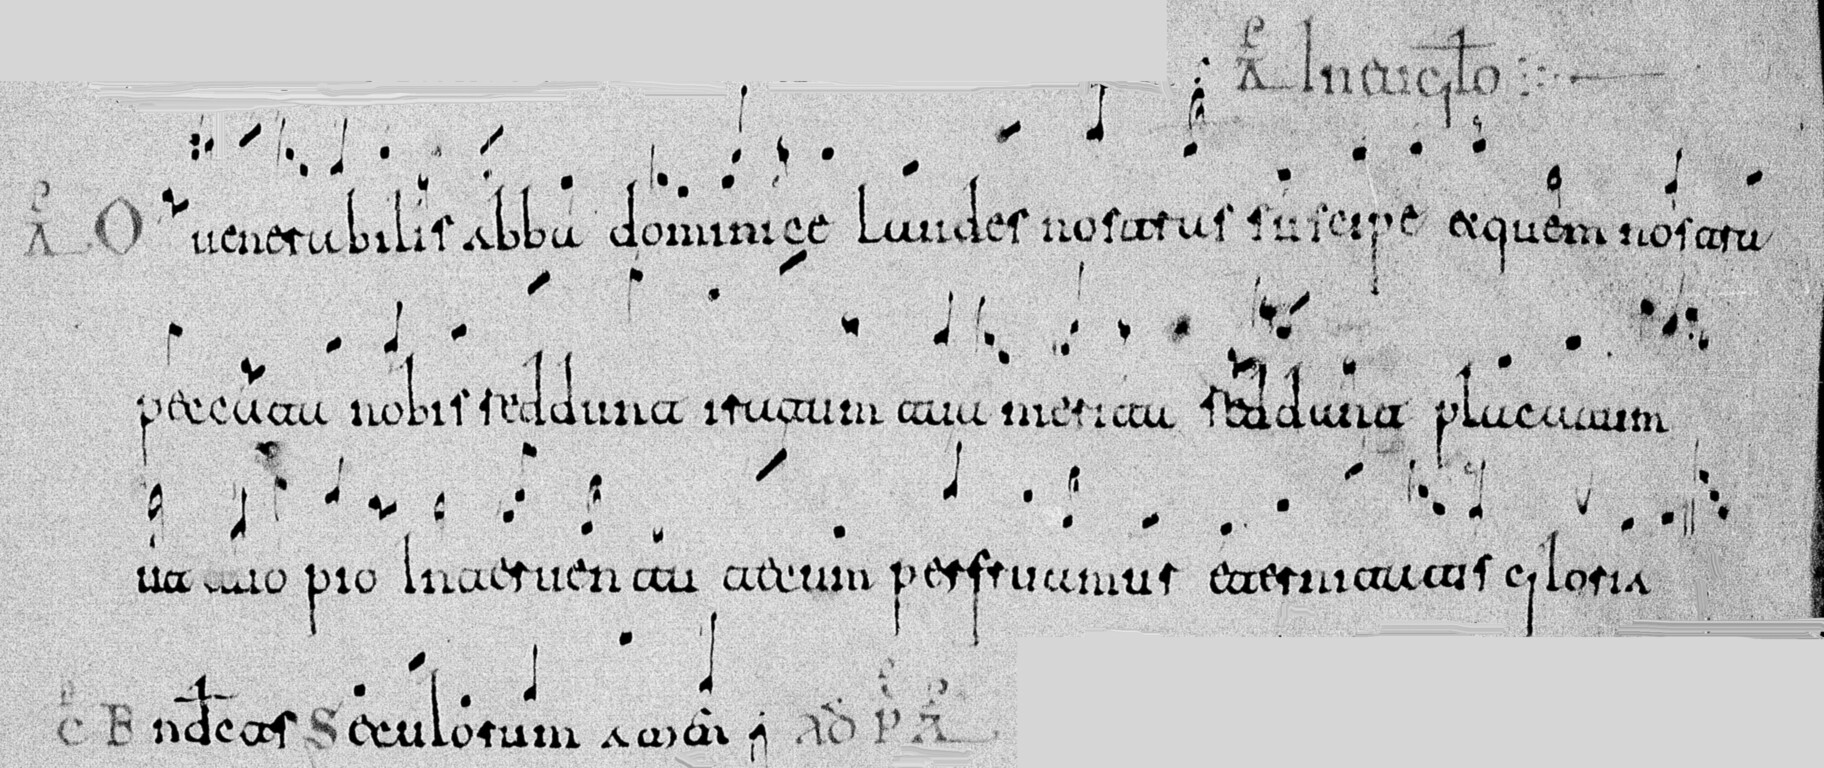 A In euglo
A O uenerabilis abba dominice laudes nostras suscipe et quem nostra
peccata nobis reddunt iratum tua merita reddant placatum
ut tuo pio Interuentu tecum perfruamur eternitatis gloria
Bndcts Seculorum amen ad P A